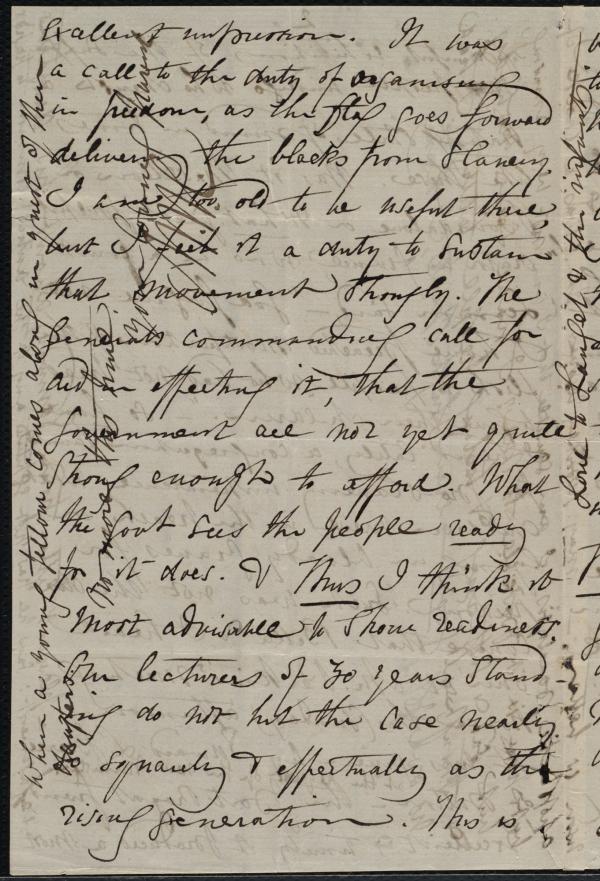 excellent impression. It was
a call to the duty of organising
in freedom, as the flag goes forward
delivering the blacks from slavery.
I am too old to be useful there,
but I feel it a duty to sustain
that movement strongly. The
Generals commanding call for
aid in effecting it, that the
Government are not yet quite
strong enough to afford. What
the Govt sees the people ready
for it does. & Thus I think it
most advisable to show readiness.
Our lecturers of 30 years stand-
ing do not hit the case nearly
so squarely & effectually as the
rising generation. This is
When a young fellow comes along in quest of them
No more this time.
Love to & the infants